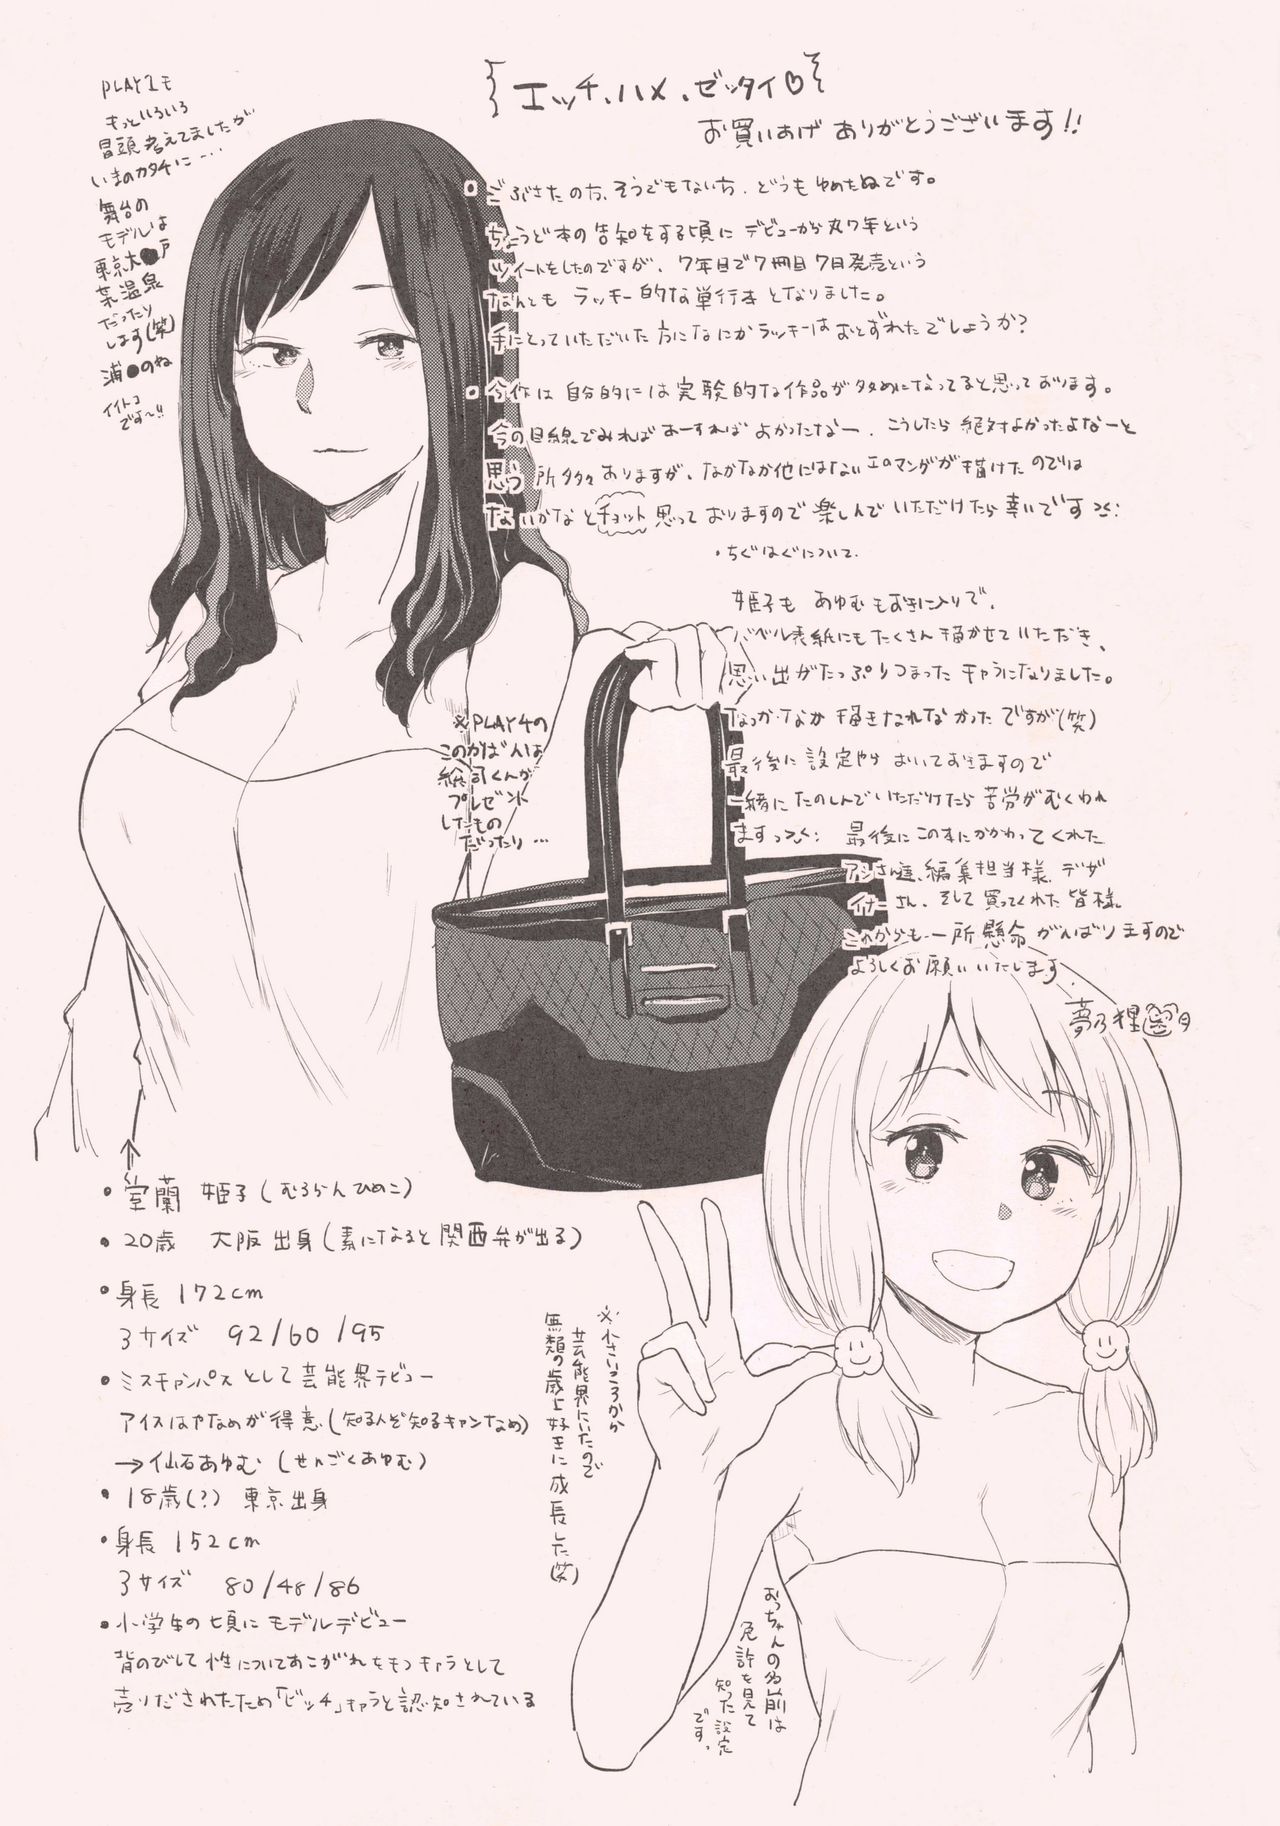 PLAY1も
もっといろいろ
冒頭考えてましたが
いまのカタチに…
舞台の
モデルは
東京大●戸
温泉
だったり
します(笑)
浦●のね
イイトコ
です〜!!
エッチ、ハメ、ゼッタイ♡
お買いあげ ありがとうございます!!
ごぶさたの方、そうでもない方、どうもゆめたぬです。
ちょうど本の告知をする頃に デビューから丸7年という
ツイートをしたのですが、7年目で7冊目7日発売という
なんとも ラッキー的な単行本となりました。
手にとっていただいた方になにかラッキーはおとずれたでしょうか?
今作は自分的には実験的な作品が多めになってると思っております。
今の目線でみればあーすればよかったなー、こうしたら絶対よかったよなーと
思う所多々ありますが、なかなか他にはないエロマンガが描けたのでは
ないかなとチョット思っておりますので楽しんでいただけたら幸いです
・ちぐはぐについて.
姫子も あゆむもお気に入りで、
バベル表紙にもたくさん描かせていただき、
思い出がたっぷりつまったキャラになりました。
なっか・なか描きなれなかったですが(笑)
最後に設定やら おいておきますので
一緒にたのしんでいただけたら苦労がむくわれ
ますっ 最後にこの本にかかわってくれた
アシさん達、編集担当様、デザ
イナーさん、そして買ってくれた皆様
これからも一所懸命がんばりますので
よろしくお願いいたします.
夢乃狸
※PLAY4の
このかばんは
くんが
プレゼント
したもの
だったり…
・室蘭 姫子(むろらんひめこ)
・20歳 大阪出身(素になると関西弁が出る)
・身長 172cm
3サイズ 92/60/95
・ミスキャンパスとして芸能界デビュー
アイスはやなめが得意(知る人ぞ知るキャンなめ)
→仙石あゆむ(せんごくあゆむ)
・18歳(?) 東京出身
・身長 152cm
おっちゃんの名前は
免許を見て
知った設定
です。